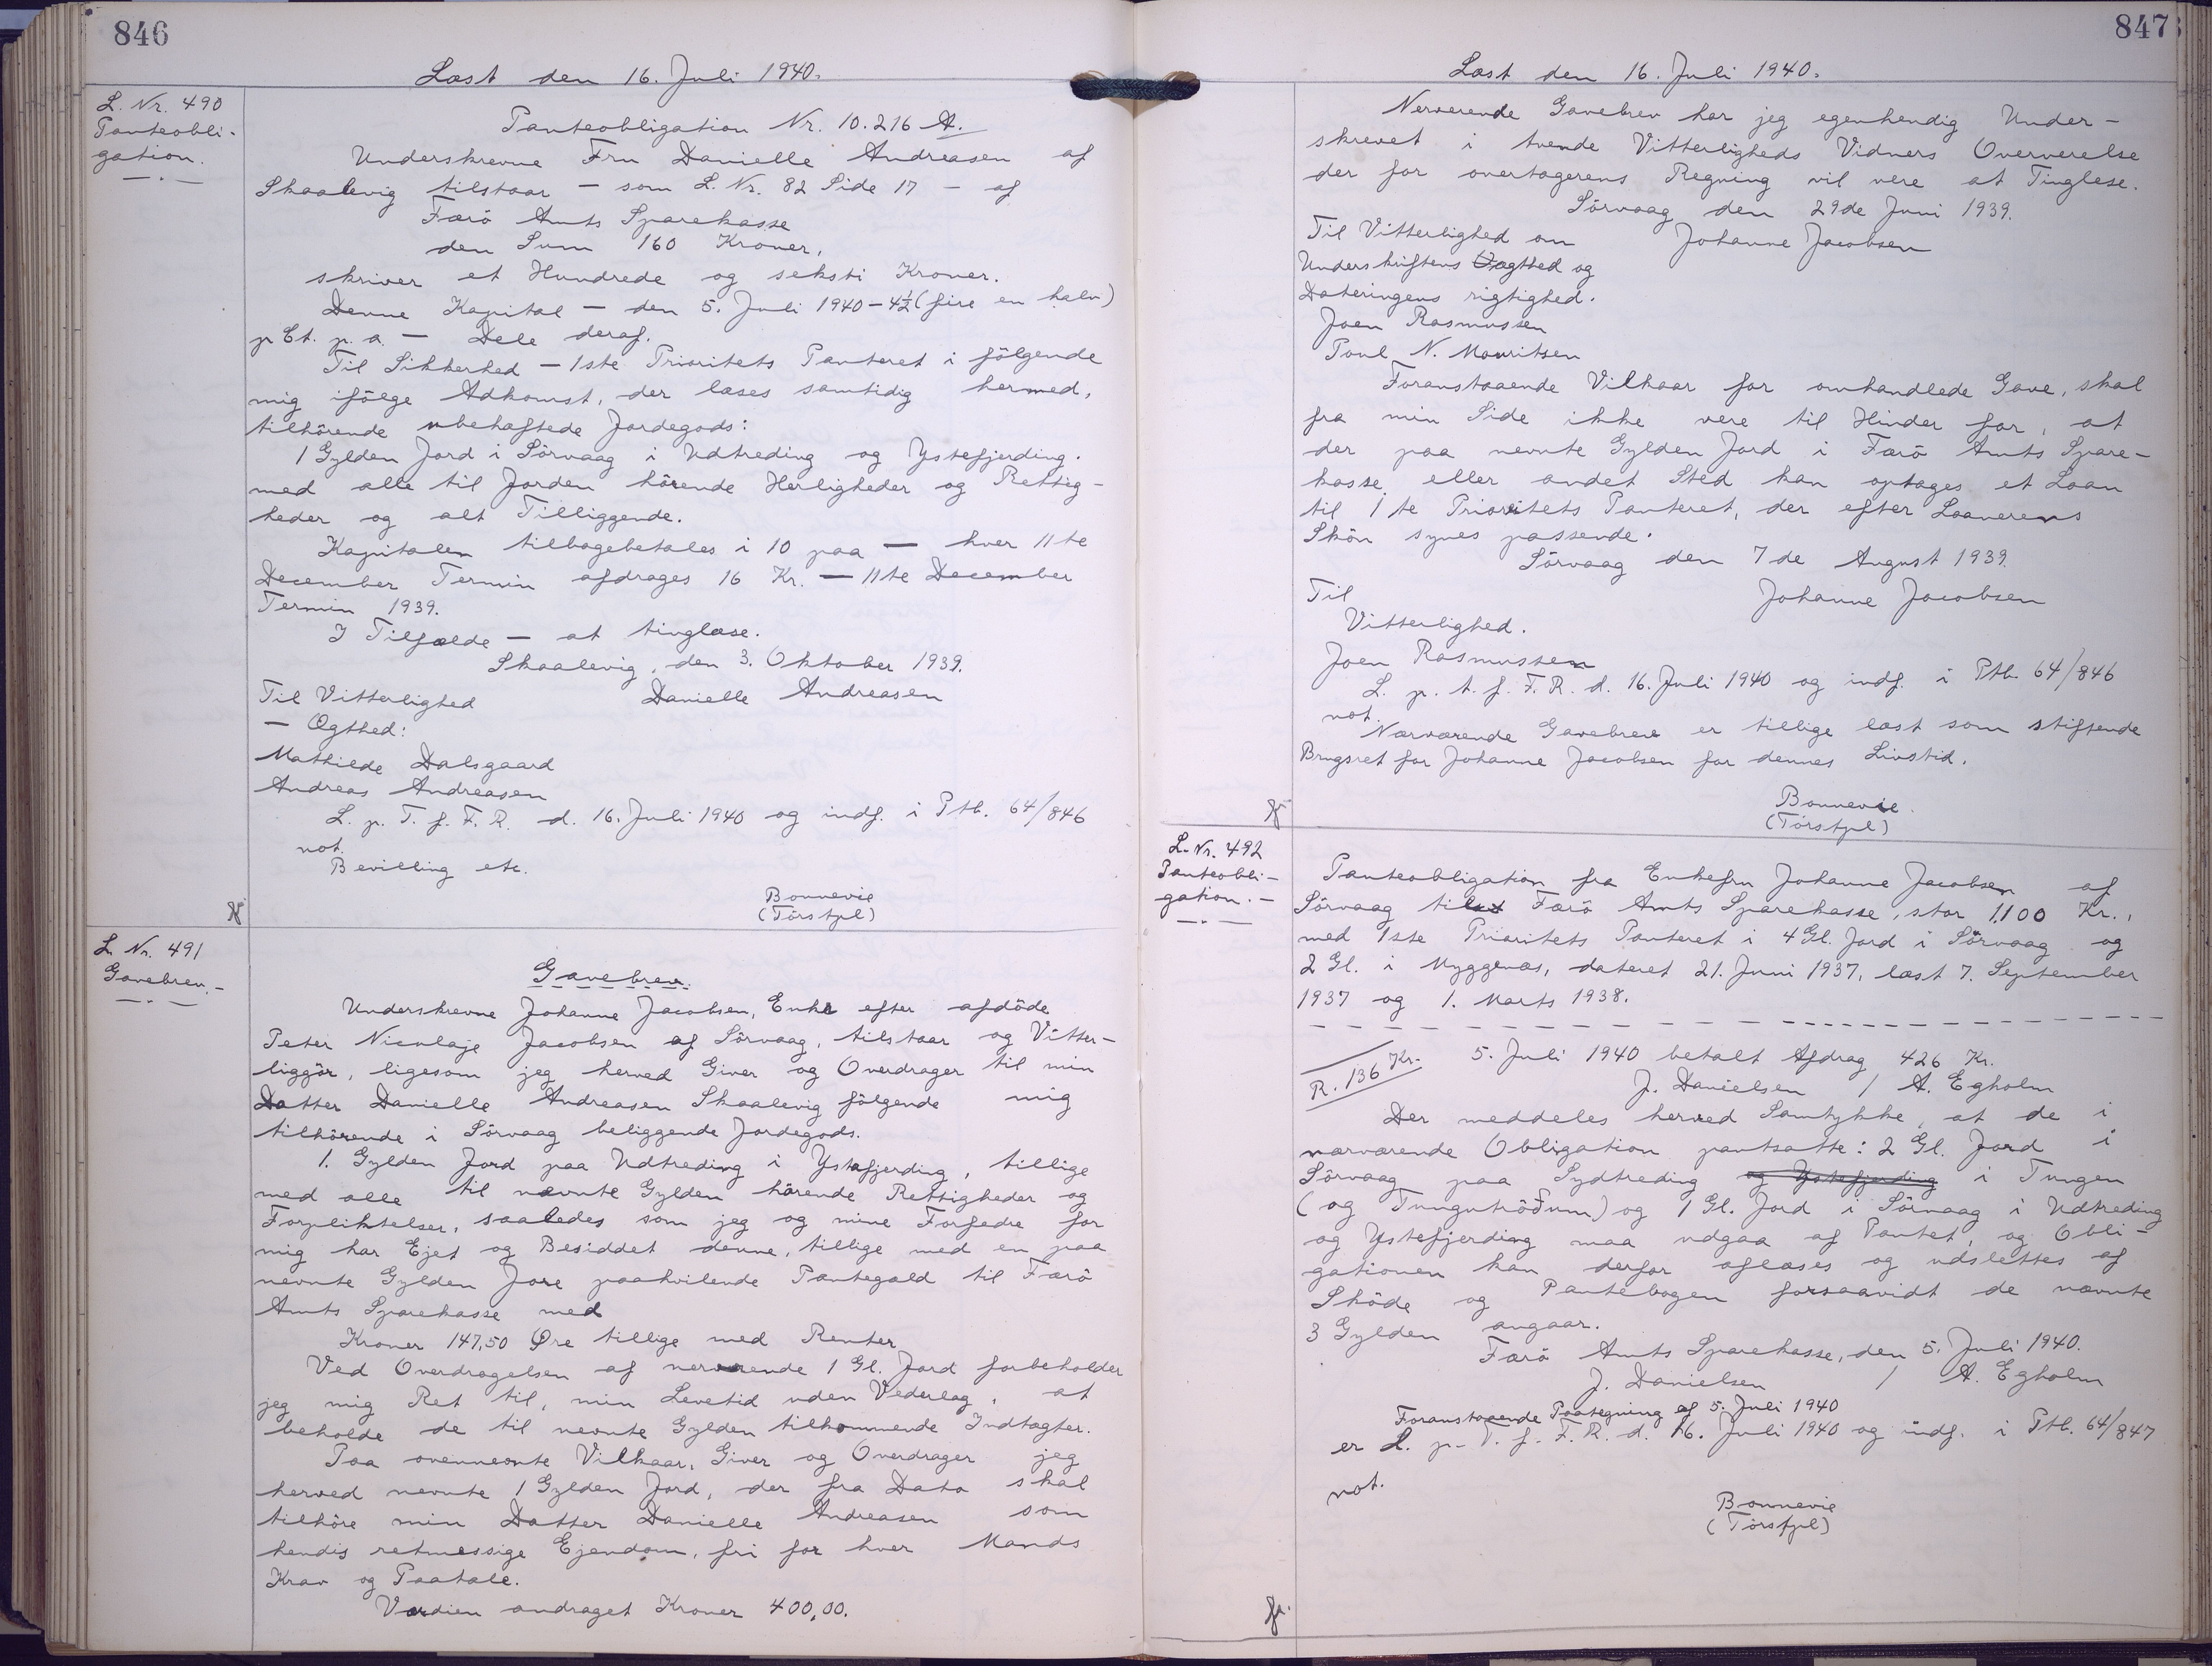 846
Læst den 16. Juli 1940.
L. Nr. 490
Panteobli-
gation.
Panteobligation Nr. 10.216 A.
Underskrevne Fru Danielle Andreasen af
Skaalevig tilstaar — som L. Nr. 82 Side 17 — af
Færö Amts Sparekasse
den Sum 160 Kroner,
skriver et Hundrede og seksti Kroner.
Denne Kapital — den 5. Juli 1940 – 4½ (fire en halv)
p Ct. p. a. — Dele deraf.
Til Sikkerhed — 1ste Prioritets Panteret i fölgende
mig ifölge Adkomst, der læses samtidig hermed,
tilhörende ubehæftede Jordegods:
1 Gylden Jord i Sörvaag i Udtreding og Ystefjerding.
med alle til Jorden hörende Herligheder og Rettig-
heder og alt Tilliggende.
Kapitalen tilbagebetales i 10 paa — hver 11te
December Termin afdrages 16 Kr. — 11te December
Termin 1939.
I Tilfælde — at tinglæse.
Skaalevig, den 3. Oktober 1939.
Til Vitterlighed Danielle Andreasen
— Ægthed:
Mathilde Dalsgaard
Andreas Andreasen
L. p. T. f. F. R. d. 16. Juli 1940 og indf. i Ptb. 64/846
not.
Bevilling etc.
Bonnevie
(Törsfpl)
L. Nr. 491
Gavebrev.-
Gavebrev.
Underskrevne Johanne Jacobsen, Enke efter afdöde
Peter Nicolaje Jacobsen af Sörvaag, tilstaar og Vitter-
liggör, ligesom jeg herved Giver og Overdrager til min
Datter Danielle Andreasen Skaalevig fölgende mig
tilhörende i Sörvaag beliggende Jordegods.
1. Gylden Jord paa Udtreding i Ystafjerding, tillige
med alle til nævnte Gylden hörende Rettigheder og
Forpliktelser, saaledes som jeg og mine Forfedre for
mig har Ejet og Besiddet denne, tillige med en paa
nevnte Gylden Jore paahvilende Pantegæld til Færö
Amts Sparekasse med
Kroner 147,50 Øre tillige med Renter
Ved Overdragelsen af nerværende 1 Gl. Jord forbeholder
jeg mig Ret til, min Levetid uden Vederlag, at
beholde de til nevnte Gylden tilkommende Indtægter.
Paa ovennevnte Vilkaar, Giver og Overdrager jeg
herved nevnte 1 Gylden Jord, der fra Dato skal
tilhöre min Datter Danielle Andreasen som
hendis retmessige Ejendom, fri for hver Mands
Krav og Paatale.
Værdien andraget Kroner 400,00.
847
Læst den 16. Juli 1940.
Nerverende Gavebrev har jeg egenhendig Under-
skrevet i tvende Vitterligheds Vidners Oververelse
der for overtagerens Regning vil vere at Tinglese.
Sörvaag den 29de Juni 1939.
Til Vitterlighed om Johanne Jacobsen
Underskriftens Ægthed og
Dateringens rigtighed.
Joen Rasmussen
Poul N. Mouritsen
Foranstaaende Vilkaar for omhandlede Gave, skal
fra min Side ikke vere til Hinder for, at
der paa nevnte Gylden Jord i Færö Amts Spare-
kasse eller andet Sted kan optages et Laan
til 1 te Prioritets Panteret, der efter Laanerens
Skön synes passende.
Sörvaag den 7 de August 1939.
Til Johanne Jacobsen
Vitterlighed.
Joen Rasmussen
L. p. t. f. F. R. d. 16. Juli 1940 og indf. i Ptb 64/846
not.
Nærværende Gavebrev er tillige læst som stiftende
Brugsret for Johanne Jacobsen for dennes Livstid.
Bonnevie.
(Törsfpl)
L. Nr. 492
Panteobli-
gation.-
Panteobligation fra Enkefru Johanne Jacobsen af
Sörvaag til Færö Amts Sparekasse, stor 1.100 Kr.,
med 1ste Prioritets Panteret i 4 Gl. Jord i Sörvaag og
2 Gl. i Myggenæs, dateret 21. Juni 1937, læst 7. September
1937 og 1. Marts 1938.
R. 136 Kr. 5. Juli 1940 betalt Afdrag 426 Kr.
J. Danielsen / A. Egholm
Der meddeles herved Samtykke, at de i
nærværende Obligation pantsatte: 2 Gl. Jord i
Sörvaag paa Sydtreding og Ystefjerding i Tungen
(og Tungutröðum) og 1 Gl. Jord i Sörvaag i Udtreding
og Ystefjerding maa udgaa af Pantet, og Obli-
gationen kan derfor aflæses og udslettes af
Sköde og Pantebogen forsaavidt de nævnte
3 Gylden angaar.
Færö Amts Sparekasse, den 5. Juli 1940.
J. Danielsen / A. Egholm
Foranstaaende Paategning af 5. Juli 1940
er L. p. T. f. F. R. d. 16. Juli 1940 og indf. i Ptb. 64/847
not.
Bonnevie
(Törsfpl)